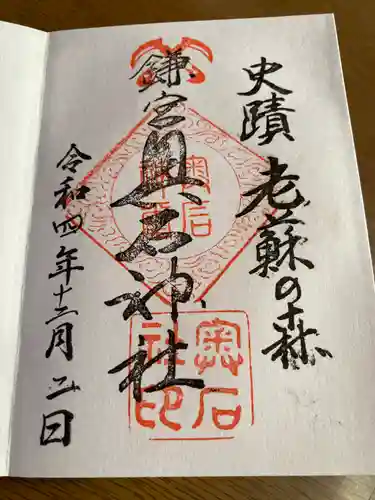 史蹟 老蘇の森
鎌宮 奥石神社
令和四年十二月二日
奥石
神社
奥石
社印